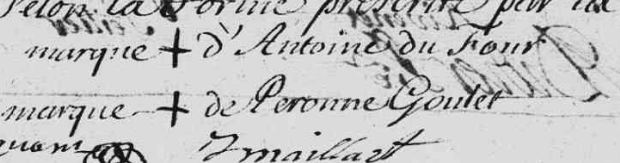 selon la forme prescrite par la
marque + d'Antoine du Four
marque + de Peronne Goulet
quant Jmaillart